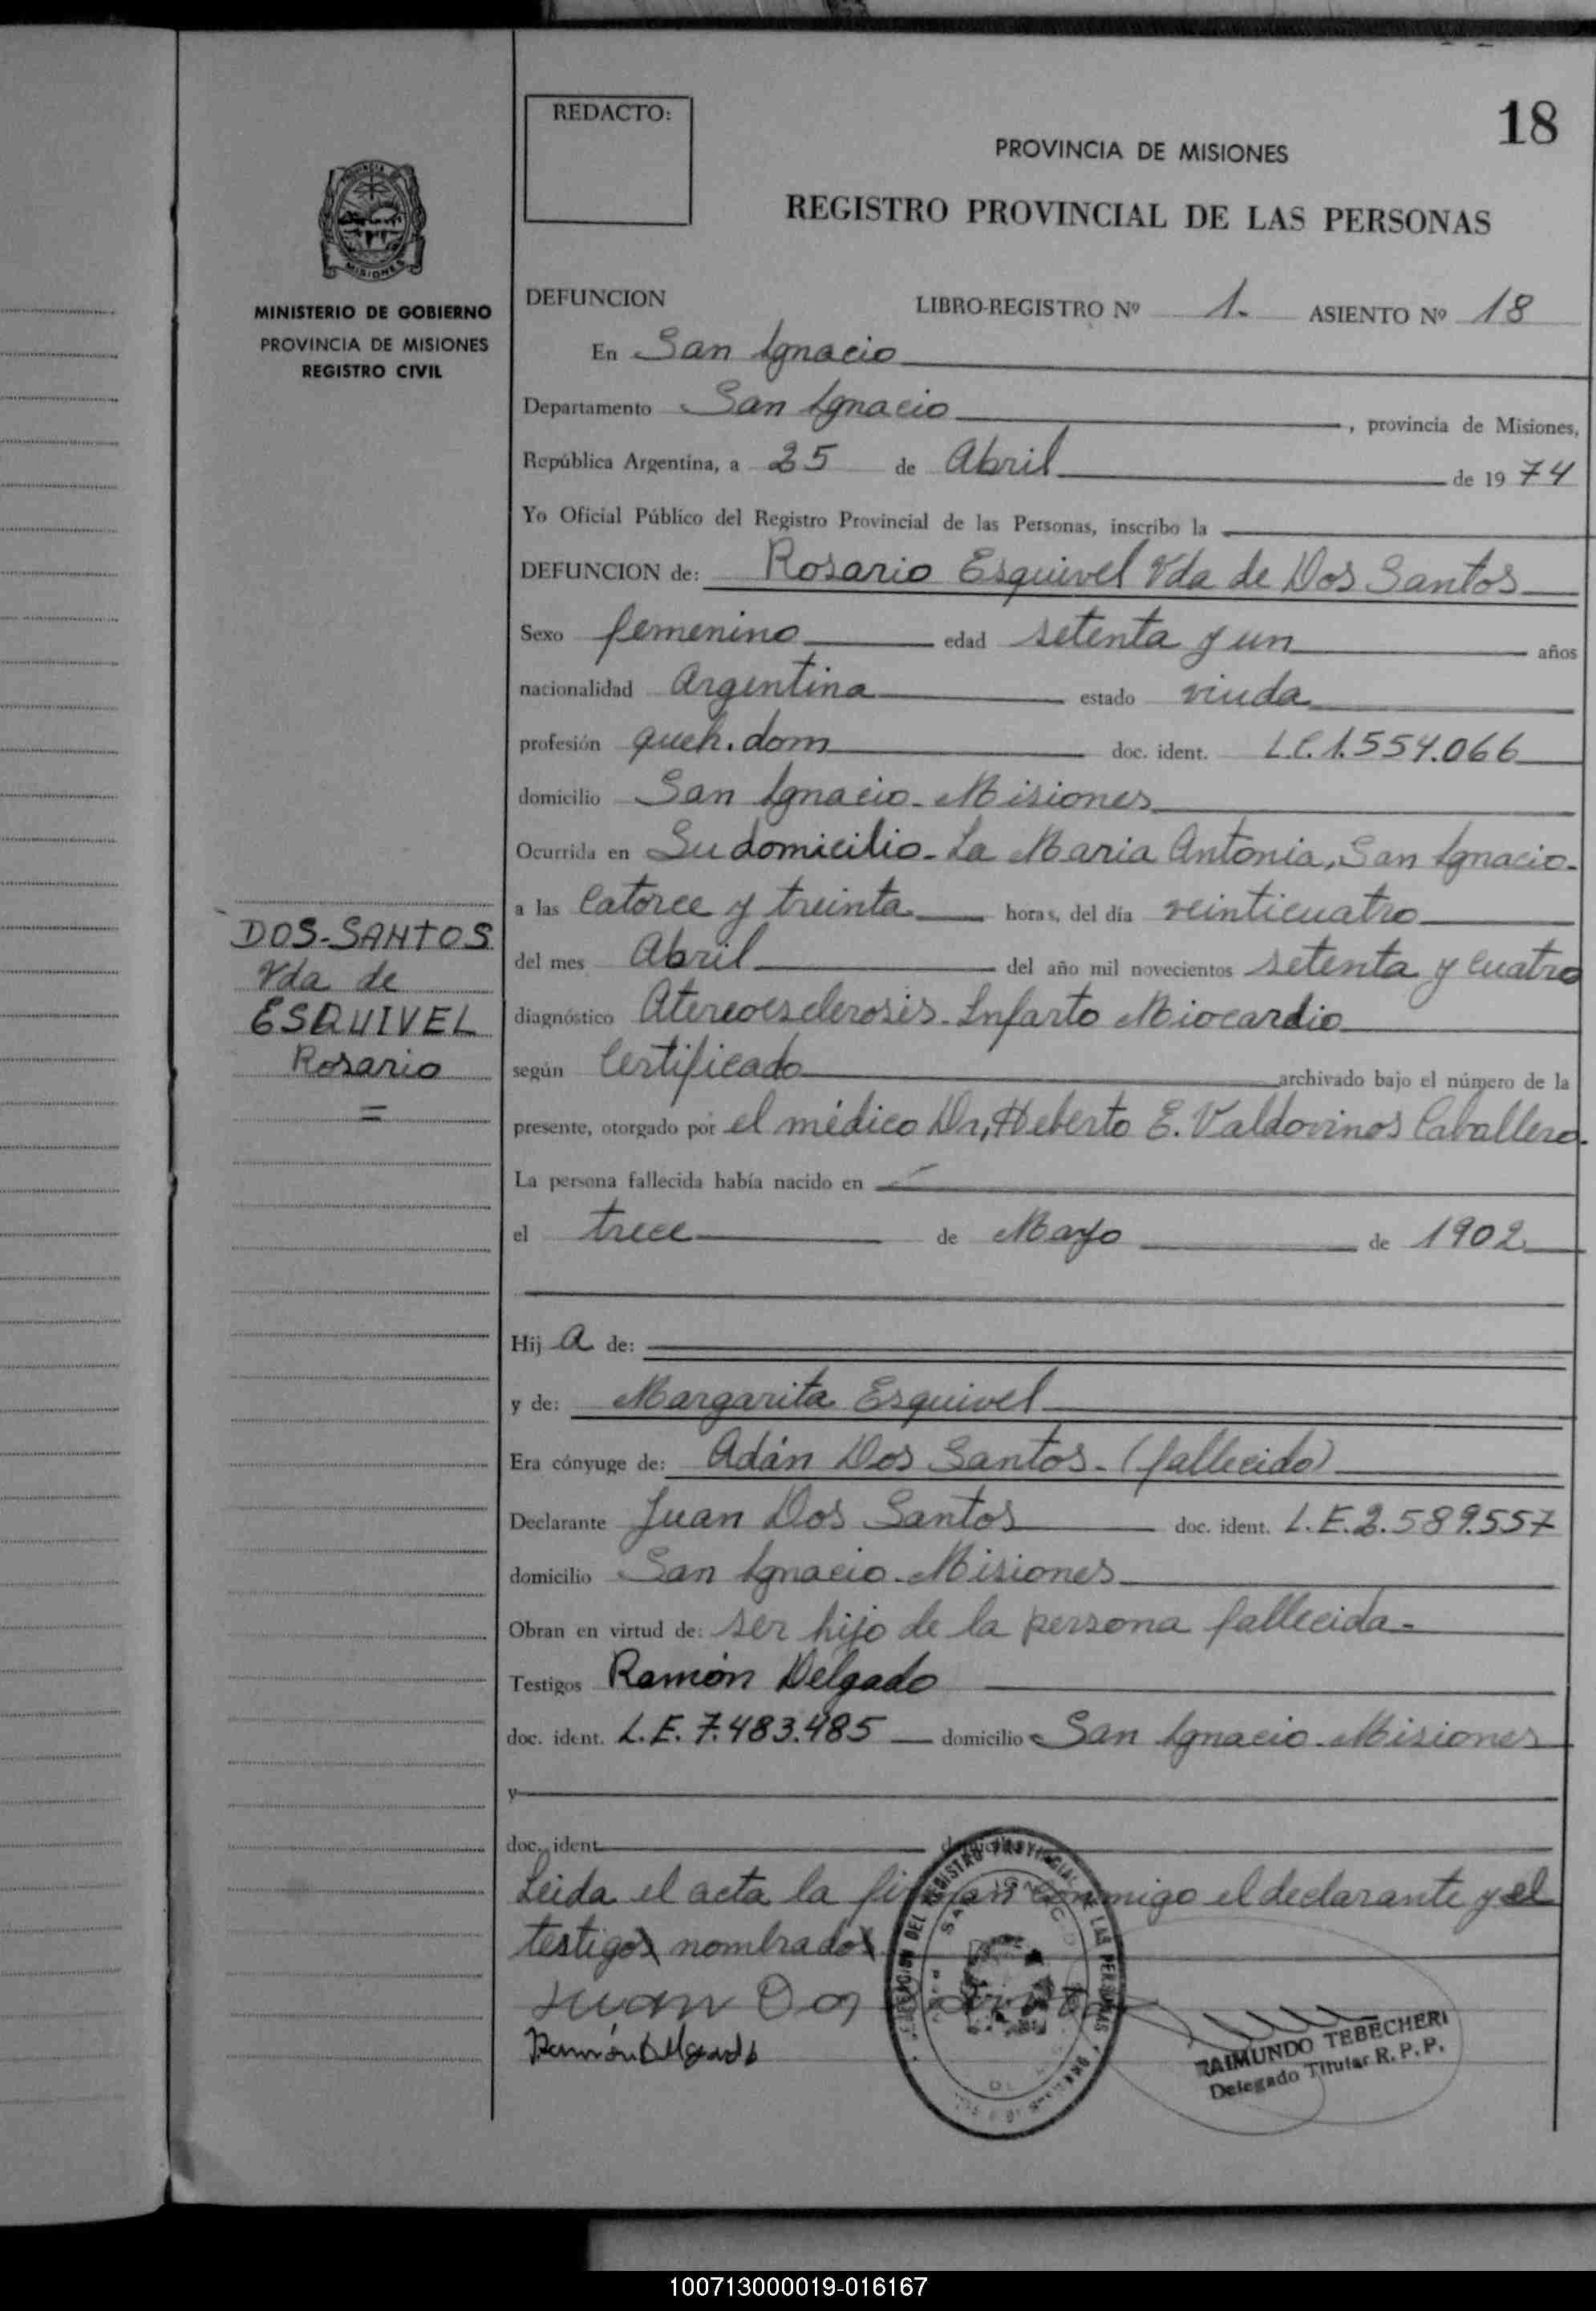 REDACTO:
18
PROVINCIA DE MISIONES
REGISTRO PROVINCIAL DE LAS PERSONAS
PROVINCIA DE
MISIONES
MINISTERIO DE GOBIERNO
PROVINCIA DE MISIONES
REGISTRO CIVIL
DEFUNCION LIBRO-REGISTRO Nº 1. ASIENTO Nº 18
En San Ignacio
Departamento San Ignacio, provincia de Misiones,
República Argentina, a 25 de Abril de 1974
Yo Oficial Público del Registro Provincial de las Personas, inscribo la
DEFUNCION de: Rosario Esquivel Vda de Dos Santos
Sexo femenino edad setenta y un años
nacionalidad Argentina estado viuda
profesión queh. dom doc. ident. L.C. 1.554.066
domicilio San Ignacio - Misiones
Ocurrida en Su domicilio - La Maria Antonia, San Ignacio -
a las Catorce y treinta horas, del día veinticuatro
del mes Abril del año mil novecientos setenta y cuatro
diagnóstico Atereoesclerosis - Infarto Miocardio
según Certificado archivado bajo el número de la
presente, otorgado por el médico Dr, Heberto E. Valdovinos Caballero.
La persona fallecida había nacido en
el trece de Mayo de 1902
Hij a de:
y de: Margarita Esquivel
Era cónyuge de: Adán Dos Santos - (fallecido)
Declarante Juan Dos Santos doc. ident. L.E. 2.589.557
domicilio San Ignacio - Misiones
Obran en virtud de: ser hijo de la persona fallecida -
Testigos Ramón Delgado
doc. ident. L.E. 7.483.485 domicilio San Ignacio - Misiones
y
doc. ident. domicilio
Leida el acta la firman conmigo el declarante y el
testigo nombrado
Juan Dos Santos
Ramón Delgado
DELEGACION DEL REGISTRO PROVINCIAL DE LAS PERSONAS
SAN IGNACIO
RAIMUNDO TEBECHERI
Delegado Titular R. P. P.
DOS-SANTOS
Vda de
ESQUIVEL
Rosario
=
100713000019-016167